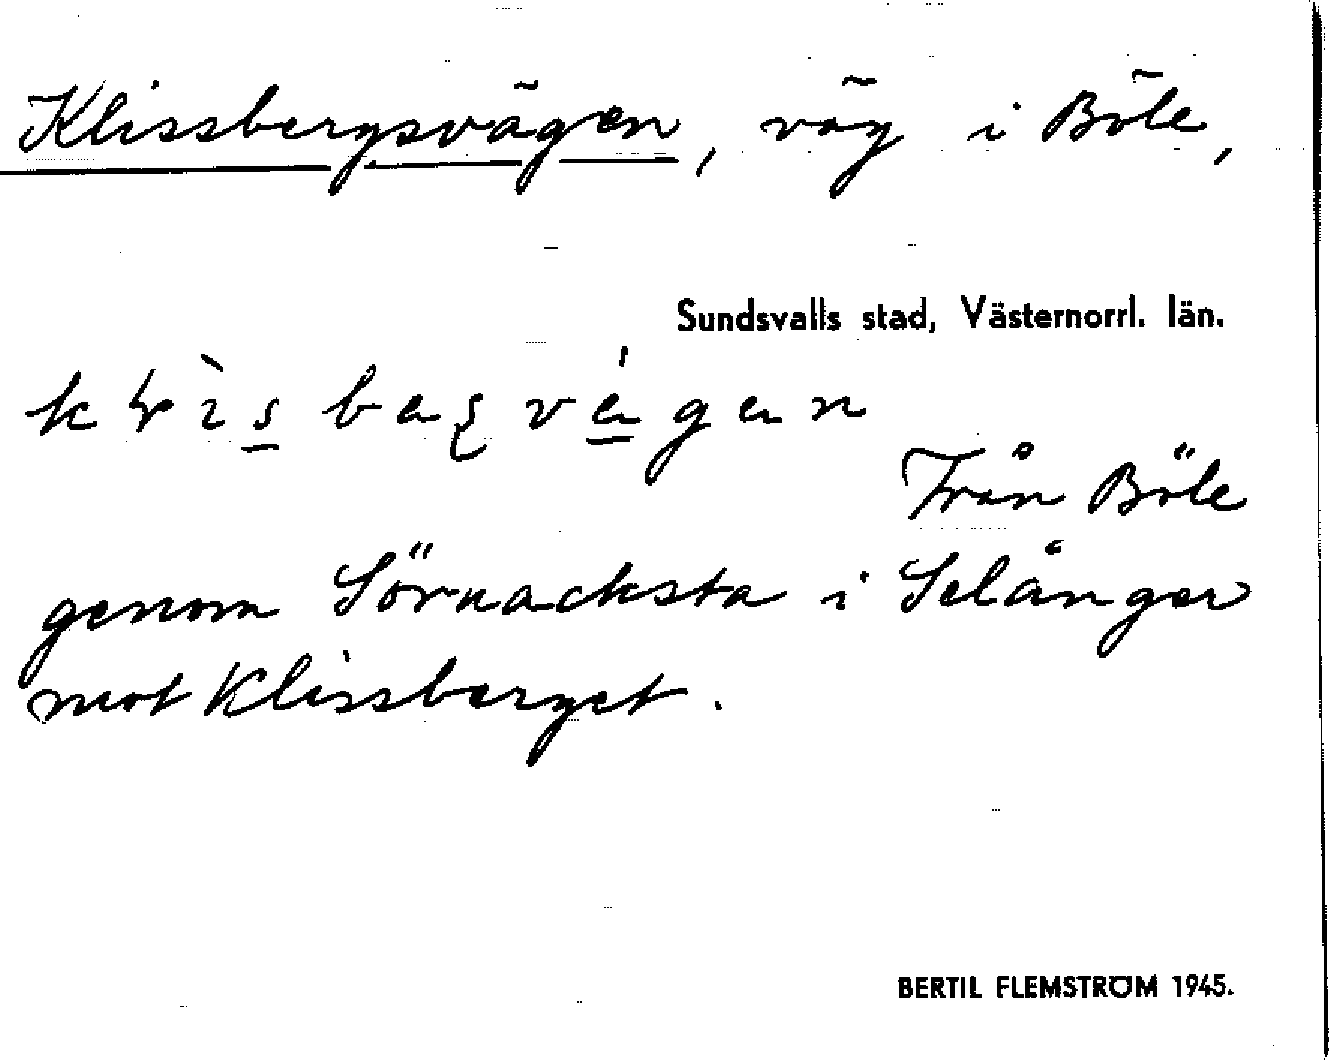 Klissbergsvägen, väg i Böle,
Sundsvalls stad, Västernorrl. län.
Från Böle
genom Sörnacksta i Selånger
mot Klissberget.
BERTIL FLEMSTRÖM 1945.